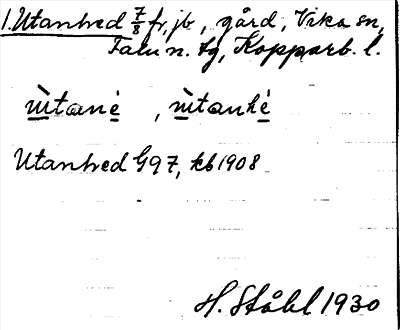 1. Utanhed 7/8 fr, jb, gård, Vika sn,
Falu n. tg, Kopparb. l.
ùtanè, ùtanhè
Utanhed G97, kb 1908
H. Ståhl 1930